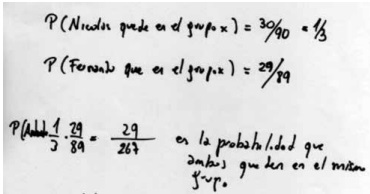 P(Nicolás quede en el grupo x) = 30/90 = 1/3
P(Fernando que en el grupo x) = 29/89
P( 1/3 · 29/89 = 29/267 es la probabilidad que
ambos queden en el mismo
grupo.